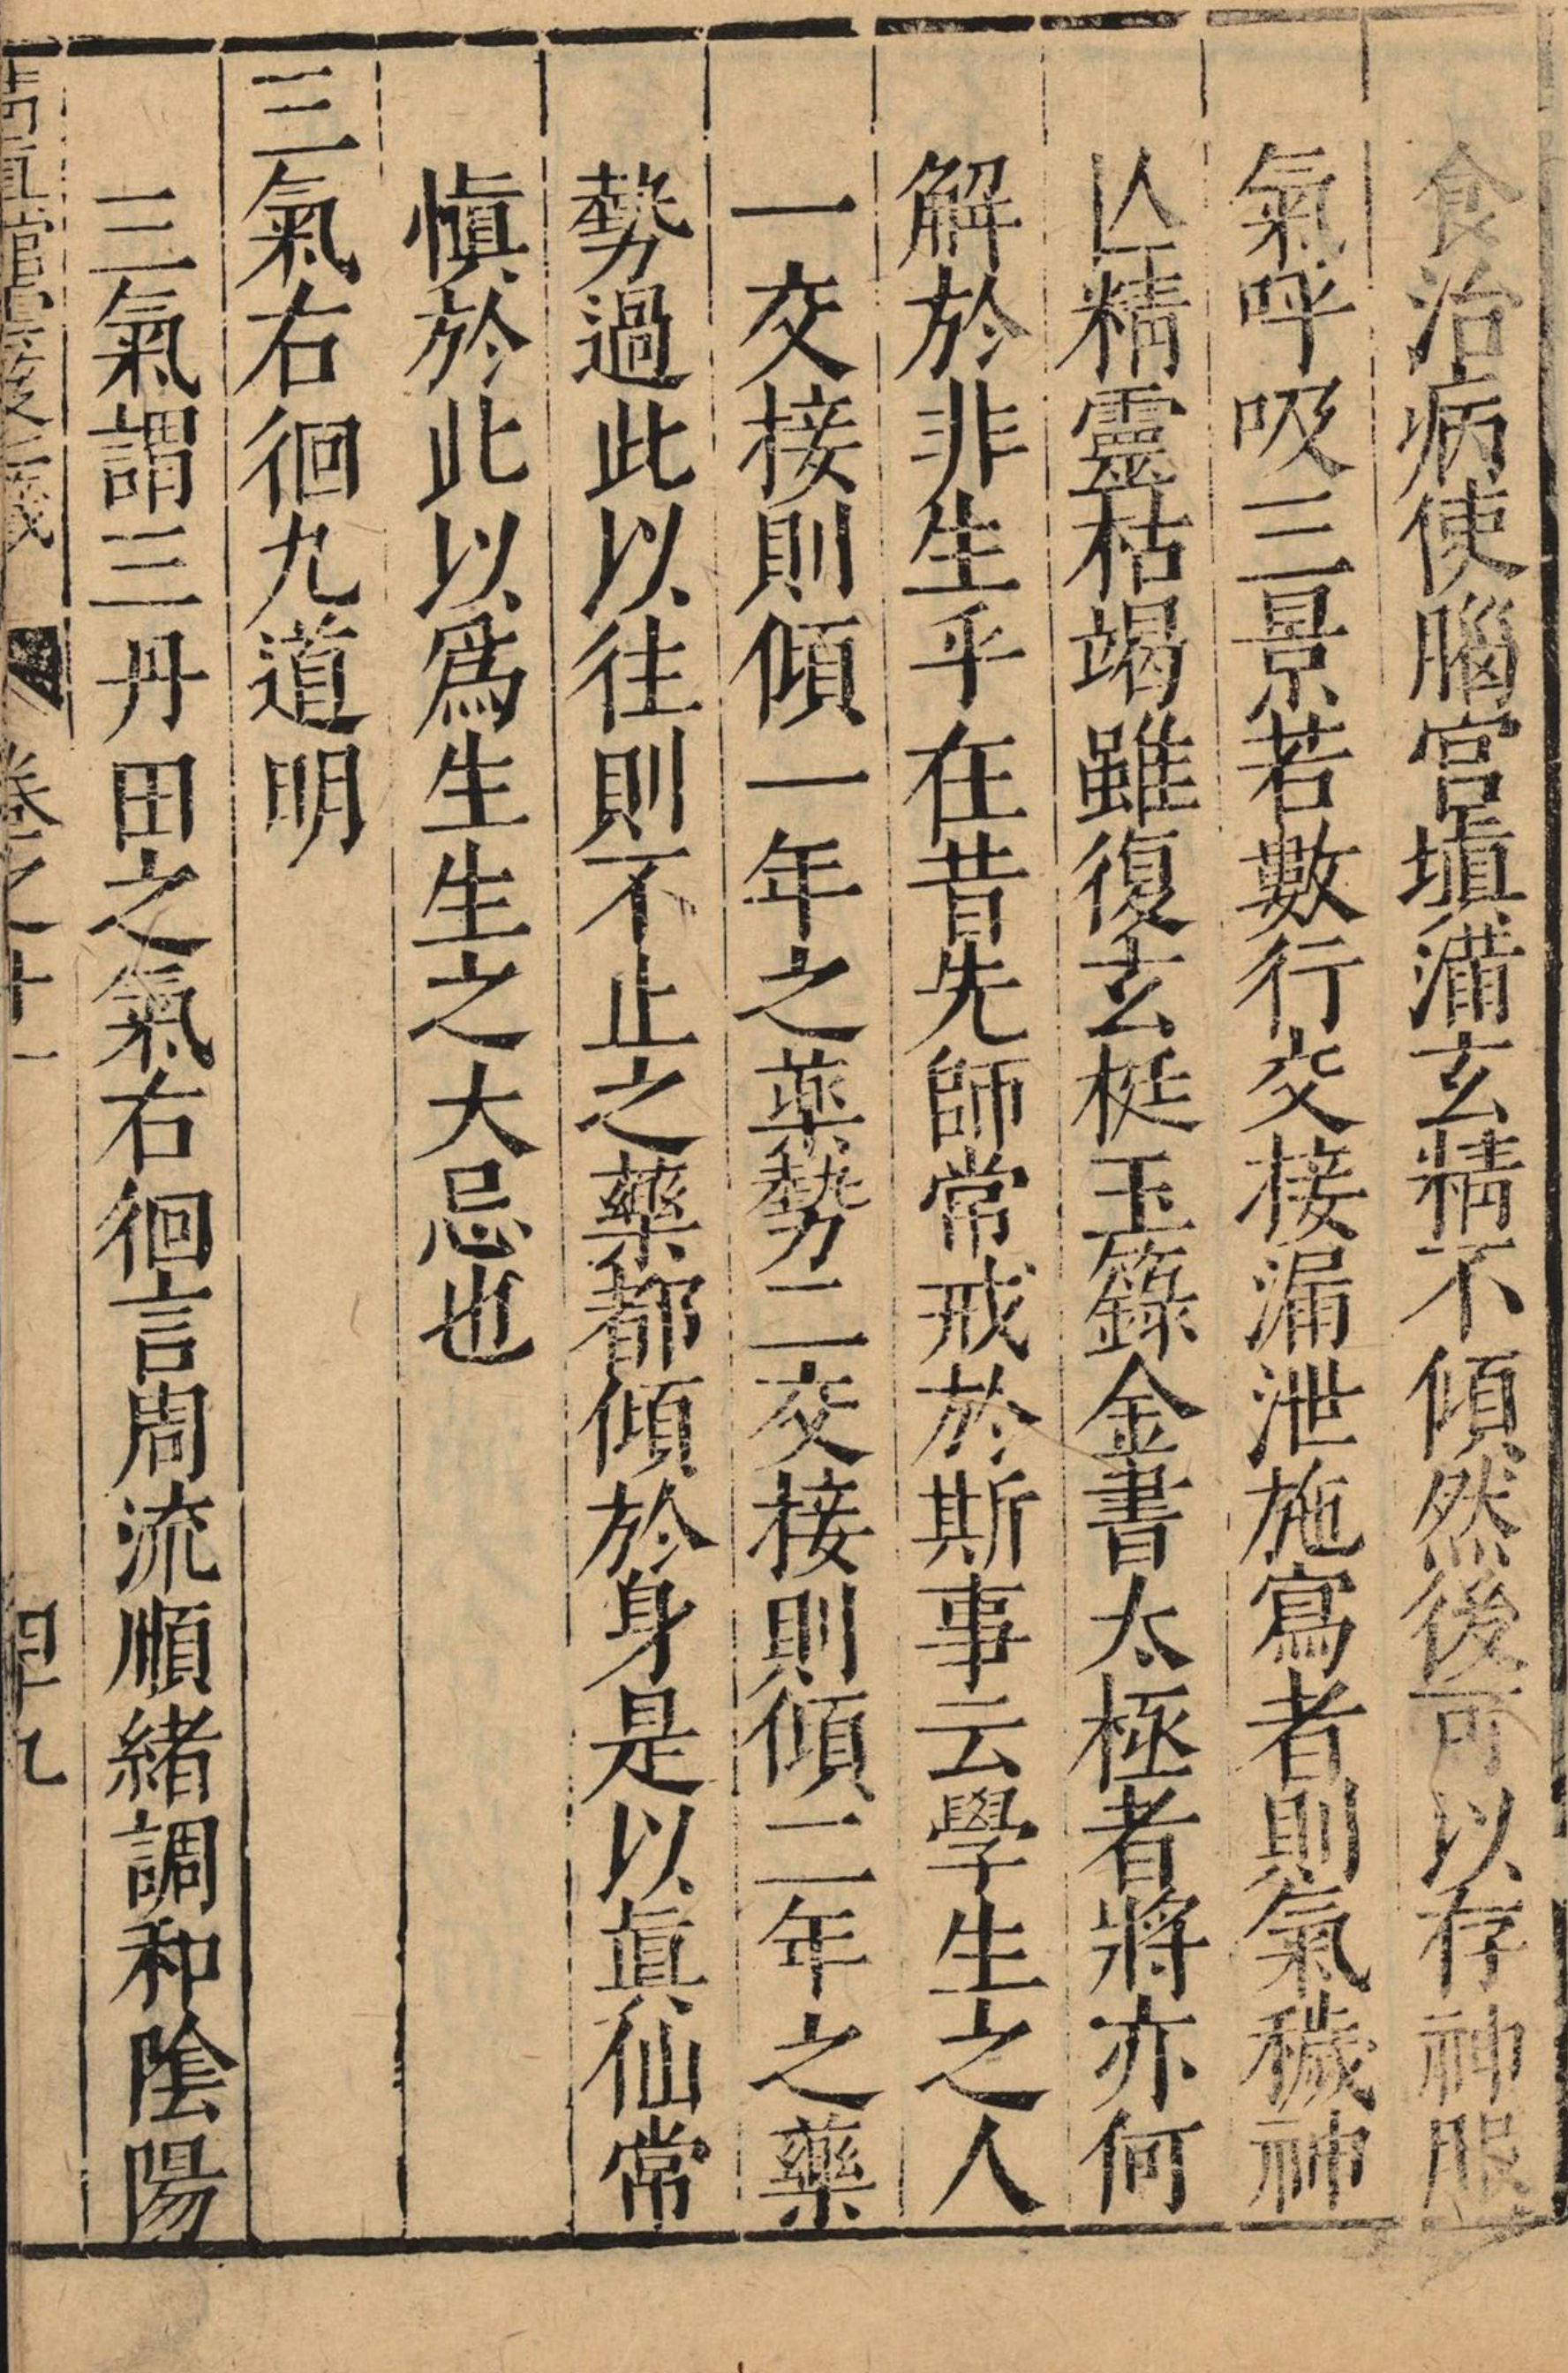 食治病使腦宮塡滿玄精不傾然後可以存神服
氣呼吸三景若數行交接漏泄施寫者則氣穢神
亾精靈枯竭雖復玄梃玉籙金書太極者將亦何
解於非生乎在昔先師常戒於斯事云學生之人
一交接則傾一年之藥勢二交接則傾二年之藥
勢過此以往則不止之藥都傾於身是以眞仙常
愼於此以爲生生之大忌也
三氣右徊九道明
三氣謂三丹田之氣右徊言周流順緒調和陰陽
卷之十一
四十九